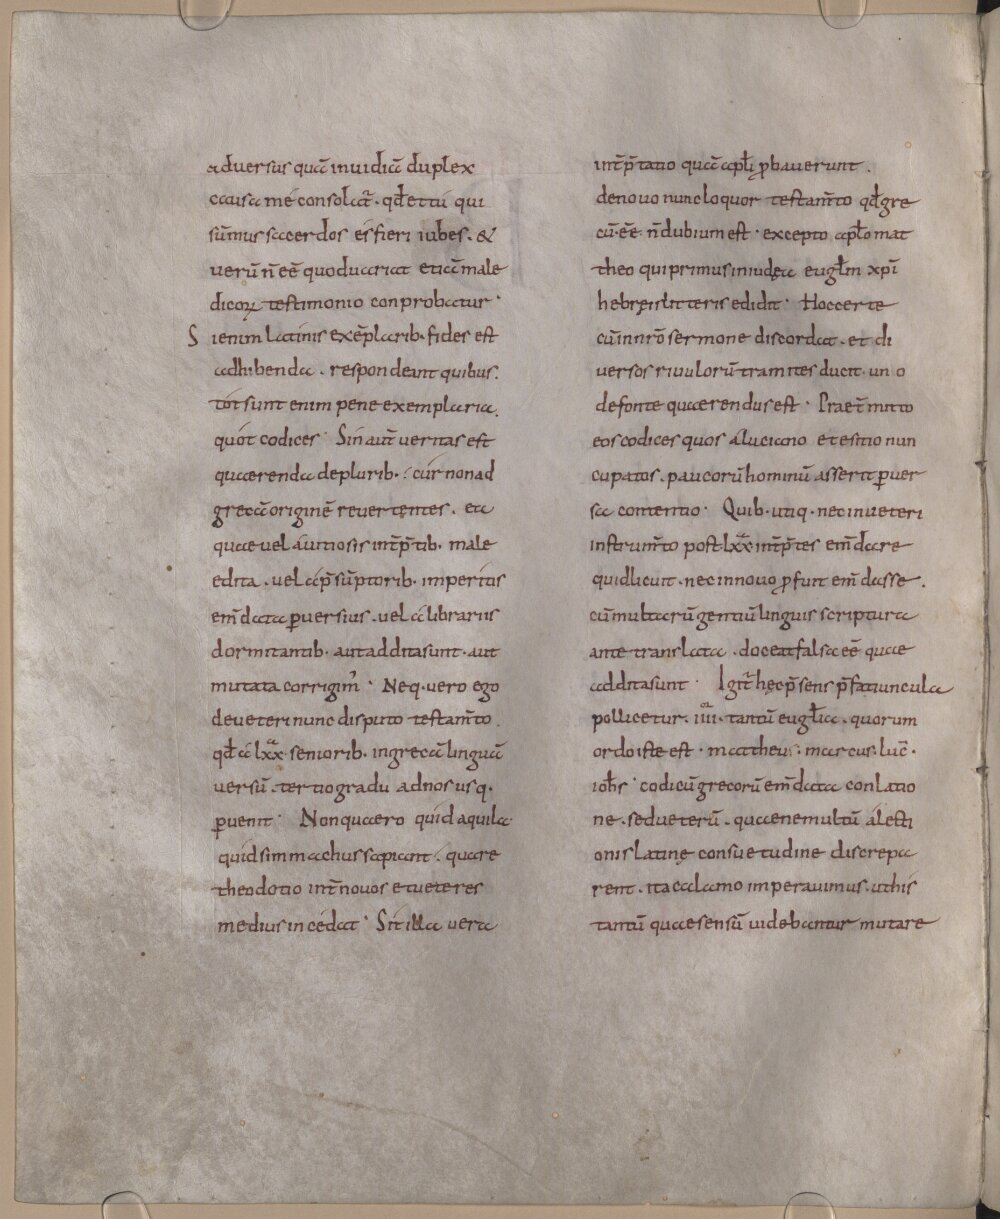 aduersus quā inuidiā duplex
causa me consolat̄. qđ et tu qui
sūmus sacerdos es fieri iubes. &
uerū n̄ eē quod uariat etiā male
dicoꝝ testimonio conprobatur.
Si enim latinis exēplarib. fides est
adhibenda. respondeant quibus.
tot sunt enim pene exemplaria.
quot codices. Sin aut̄ ueritas est
querenda de plurib. cur non ad
grecā originē reuertentes. ea
quae uel a uitiosis int̄p̄tib. male
edita. uel a p̄sūptorib. imperitis
em̄data ꝑuersius. uel a librariis
dormitantib. aut addita sunt. aut
mutata corrigim᾽. Neq. uero ego
de ueteri nunc disputo testam̄to.
qđ a lxx seniorib. in grecā linguā
uersū. tertio gradu ad nos usq.
ꝑuenit. Non quaero quid aquila
quid simmachus sapiant. quare
theodotio int̄ nouos et ueteres
medius incedat. Sit illa uera
int̄p̄tatio quā apłi ꝓbauerunt.
de nouo nunc loquor testam̄to qđ gre
cū eē n̄ dubium est. excepto apło mat
theo qui primus in iudęa eugłm xp̄i
hebręis litteris edidit. Hoc certe
cū in nrō sermone discordat. et di
uersos riuulorū tramites ducit. uno
de fonte quaerendus est. Praet̄mitto
eos codices quos a luciano et esitio nun
cupatos. paucorū hominū asserit ꝑuer
sa contentio. Quib. utiq. nec in ueteri
instrum̄to post lxx int̄p̄tes em̄dare
quid licuit. nec in nouo ꝓfuit em̄dasse.
cū multarū gentiū linguis scriptura
ante translata. doceat falsa eē quae
addita sunt. Igit̄ hęc p̄sens p̄fatiuncula
pollicetur. iiiior. tantū eugłia. quorum
ordo iste est. mattheus. marcus. luc̄.
iohs. codicū grecorū em̄data conlatio
ne. sed ueterū. quae ne multū a lecti
onis latinę consuetudine discrepa
rent. ita calamo imperauimus. ut his
tantū quae sensū uidebantur mutare